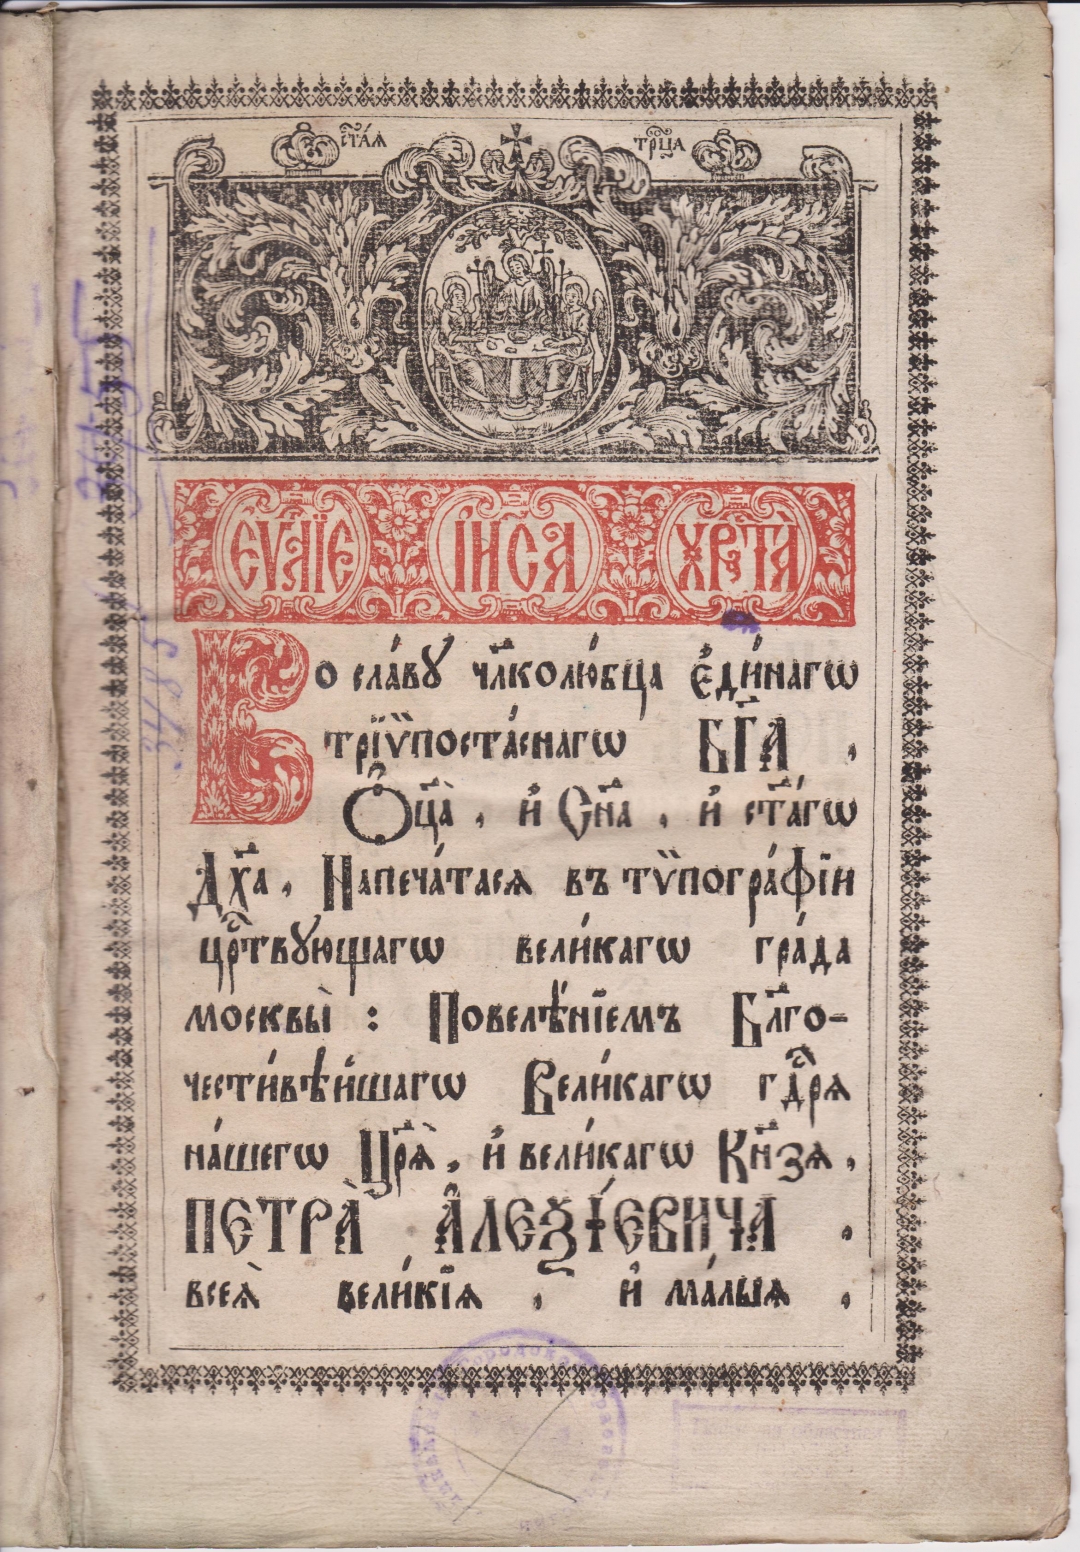 ст҃а́ѧ трⷪ҇ца
ЕѴⷢ҇ЛЇЕ І҆И҃СА ХРⷭ҇ТА̀
Во сла́вꙋ чл҃колю́бца є҆ди́нагѡ
трїѵпоста́снагѡ БГ҃А ,
Ѻ҆ц҃а̀ , и҆ Сн҃а , и҆ ст҃а́гѡ
Дх҃а , Напеча́тасѧ въ тѷпогра́фїи
црⷭ҇твꙋющагѡ вели́кагѡ гра́да
москвы̀ : Повелѣ́нїемъ Бл҃го-
чести́вѣйшагѡ Вели́кагѡ гдⷭ҇рѧ
на́шегѡ Цр҃ѧ̀ , и҆ вели́кагѡ Кн҃зѧ ,
ПЕТРА̀ А҆ЛЕѮІ́ЕВИЧА ,
всеѧ̀ вели́кїѧ , и҆ ма́лыѧ ,
3485